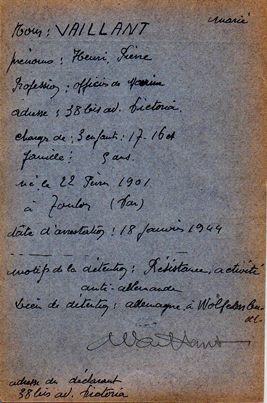 marié
Nom : VAILLANT
prénoms : Henri, Pierre
Profession : officier de marine
adresse : 38 bis av. Victoria.
charges de : 3 enfants : 17 - 16 et
famille : 9 ans.
né le 22 Févr 1901
à Toulon (Var)
date d'arrestation : 18 janvier 1944
motifs de la détention : Résistance, activité
anti-allemande
Lieu de détention : allemagne, à Wolfenbu-
Vaillant
adresse du déclarant
38 bis av. Victoria